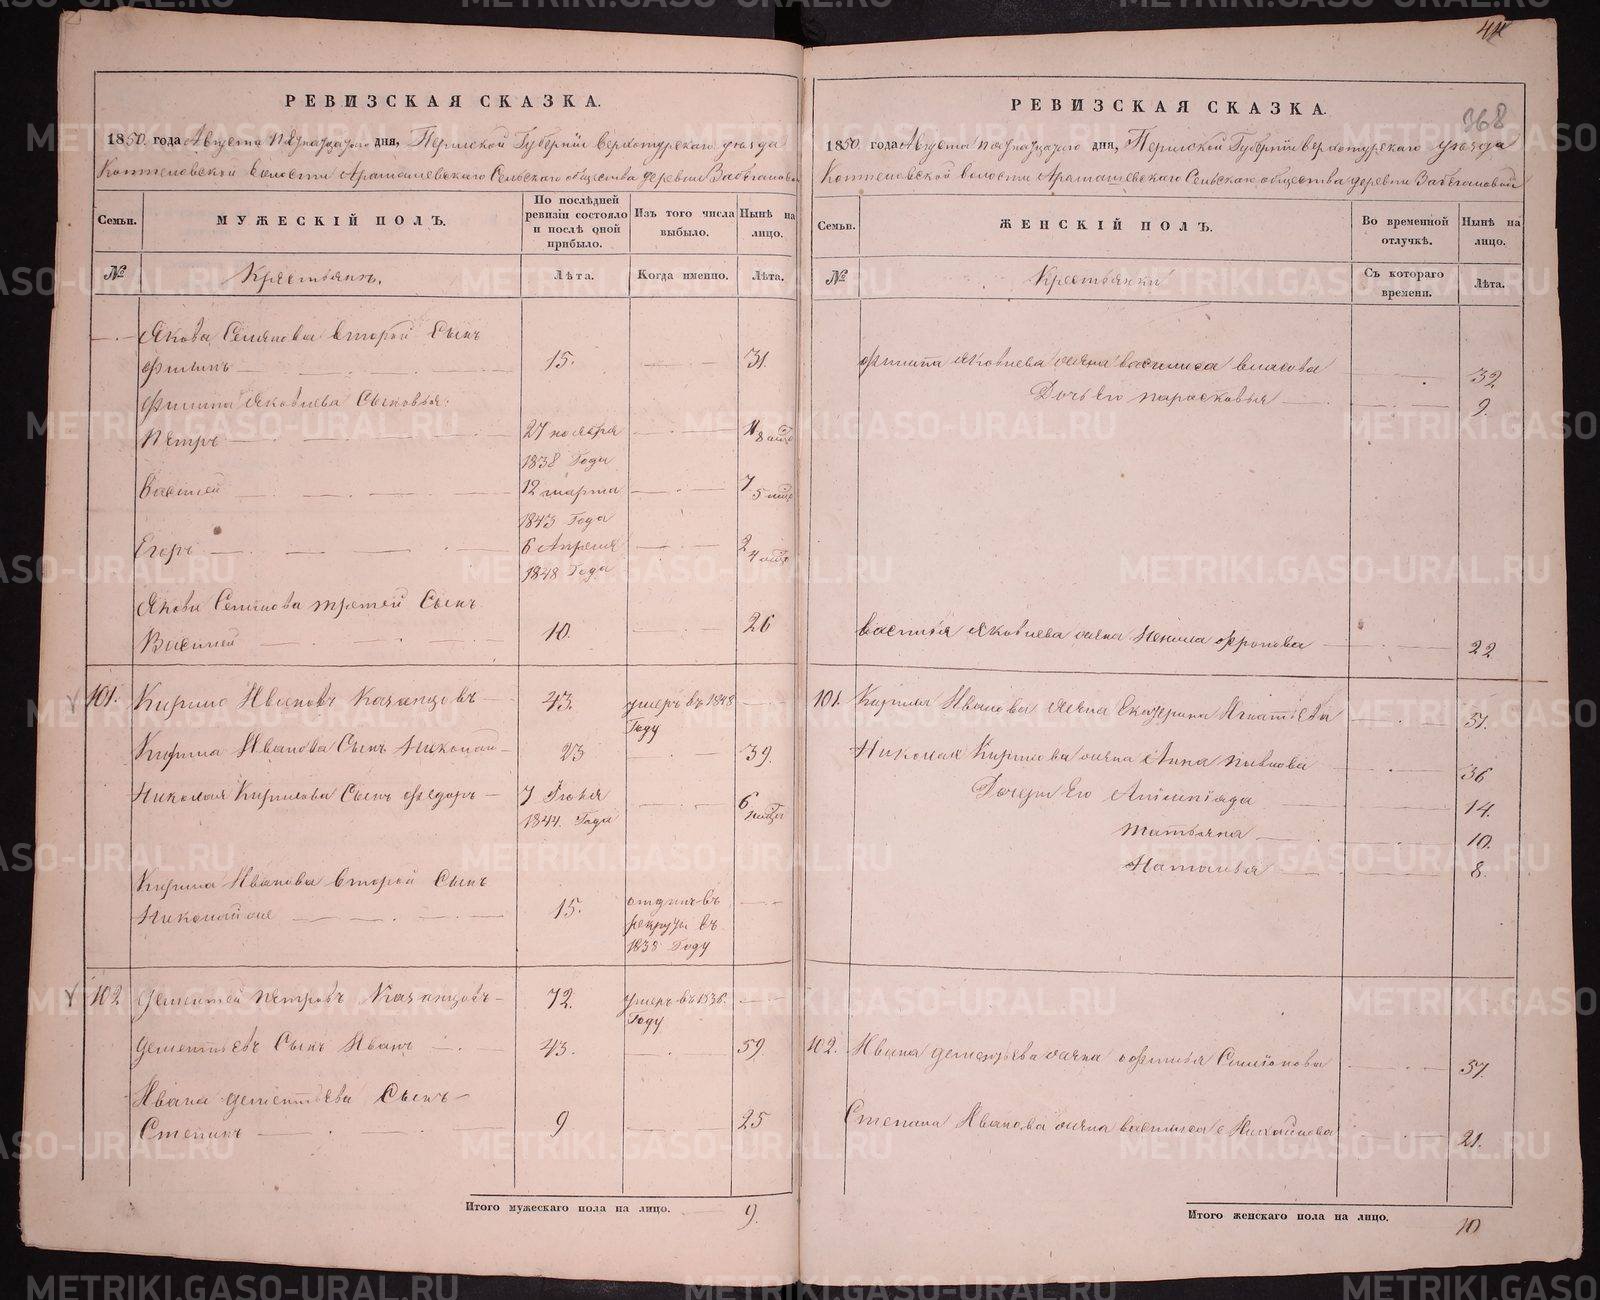 44
368
РЕВИЗСКАЯ СКАЗКА.
1850. года Августа пятнадцатого дня, Пермской Губерніи Верхотурскаго уезда
волости Арамашевскаго Сельскаго общества деревни
Семьи.
МУЖЕСКІЙ ПОЛЪ.
По послѣдней ревизіи состояло и послѣ оной прибыло.
Изъ того числа выбыло.
Нынѣ на лицо.
№
Крестьянъ.
Лѣта.
Когда именно.
Лѣта.
Якова Семенова второй Сынъ
Филипъ 15. 31.
Филипа Яковлева Сыновья.
Петръ 27 ноября 11
1838 Года
Василей 12 марта 7
1843 Года 5
Егоръ 6 Апреля 2
1848 Года 4
Якова Семенова третей Сынъ
Василей 10. 26
101. Кирило Ивановъ Казанцовъ 43. умеръ въ 1848
Году
Кирила Иванова Сынъ Николай 23 39.
Николая Кирилова Сынъ Федоръ 7 6
1844. Года
Кирила Иванова второй Сынъ
Николай же 15. отданъ въ
рекруты въ
1838 Году
102 Дементей Петровъ Казанцовъ 72. умеръ въ 1836.
Году
Дементьевъ Сынъ Иванъ 43. 59.
Ивана Дементьева Сынъ
Степанъ 9 25
Итого мужескаго пола на лицо. 9.
РЕВИЗСКАЯ СКАЗКА.
1850. года Августа пятнадцатаго дня, Пермской Губерніи Верхотурскаго уезда
волости Арамашевскаго Сельскаго общества деревни
Семьи.
ЖЕНСКІЙ ПОЛЪ.
Во временной отлучкѣ.
Нынѣ на лицо.
№
Крестьянки
Съ котораго времени.
Лѣта.
Филипа Яковлева жена Василиса Власова 32
Дочь Его Парасковья 9.
Василья Яковлева жена 22
101. Кирилы Иванова жена Екатерина Игнатьева 51.
Николая Кирилова жена Анна Павлова 36
Дочери Его 14.
Татьяна 10.
Наталья 8.
102. Ивана Дементьева жена Софья Семіонова 57.
Степана Иванова жена Василиса Михайлова 21.
Итого женскаго пола на лицо. 10
METRIKI.GASO-URAL.RU